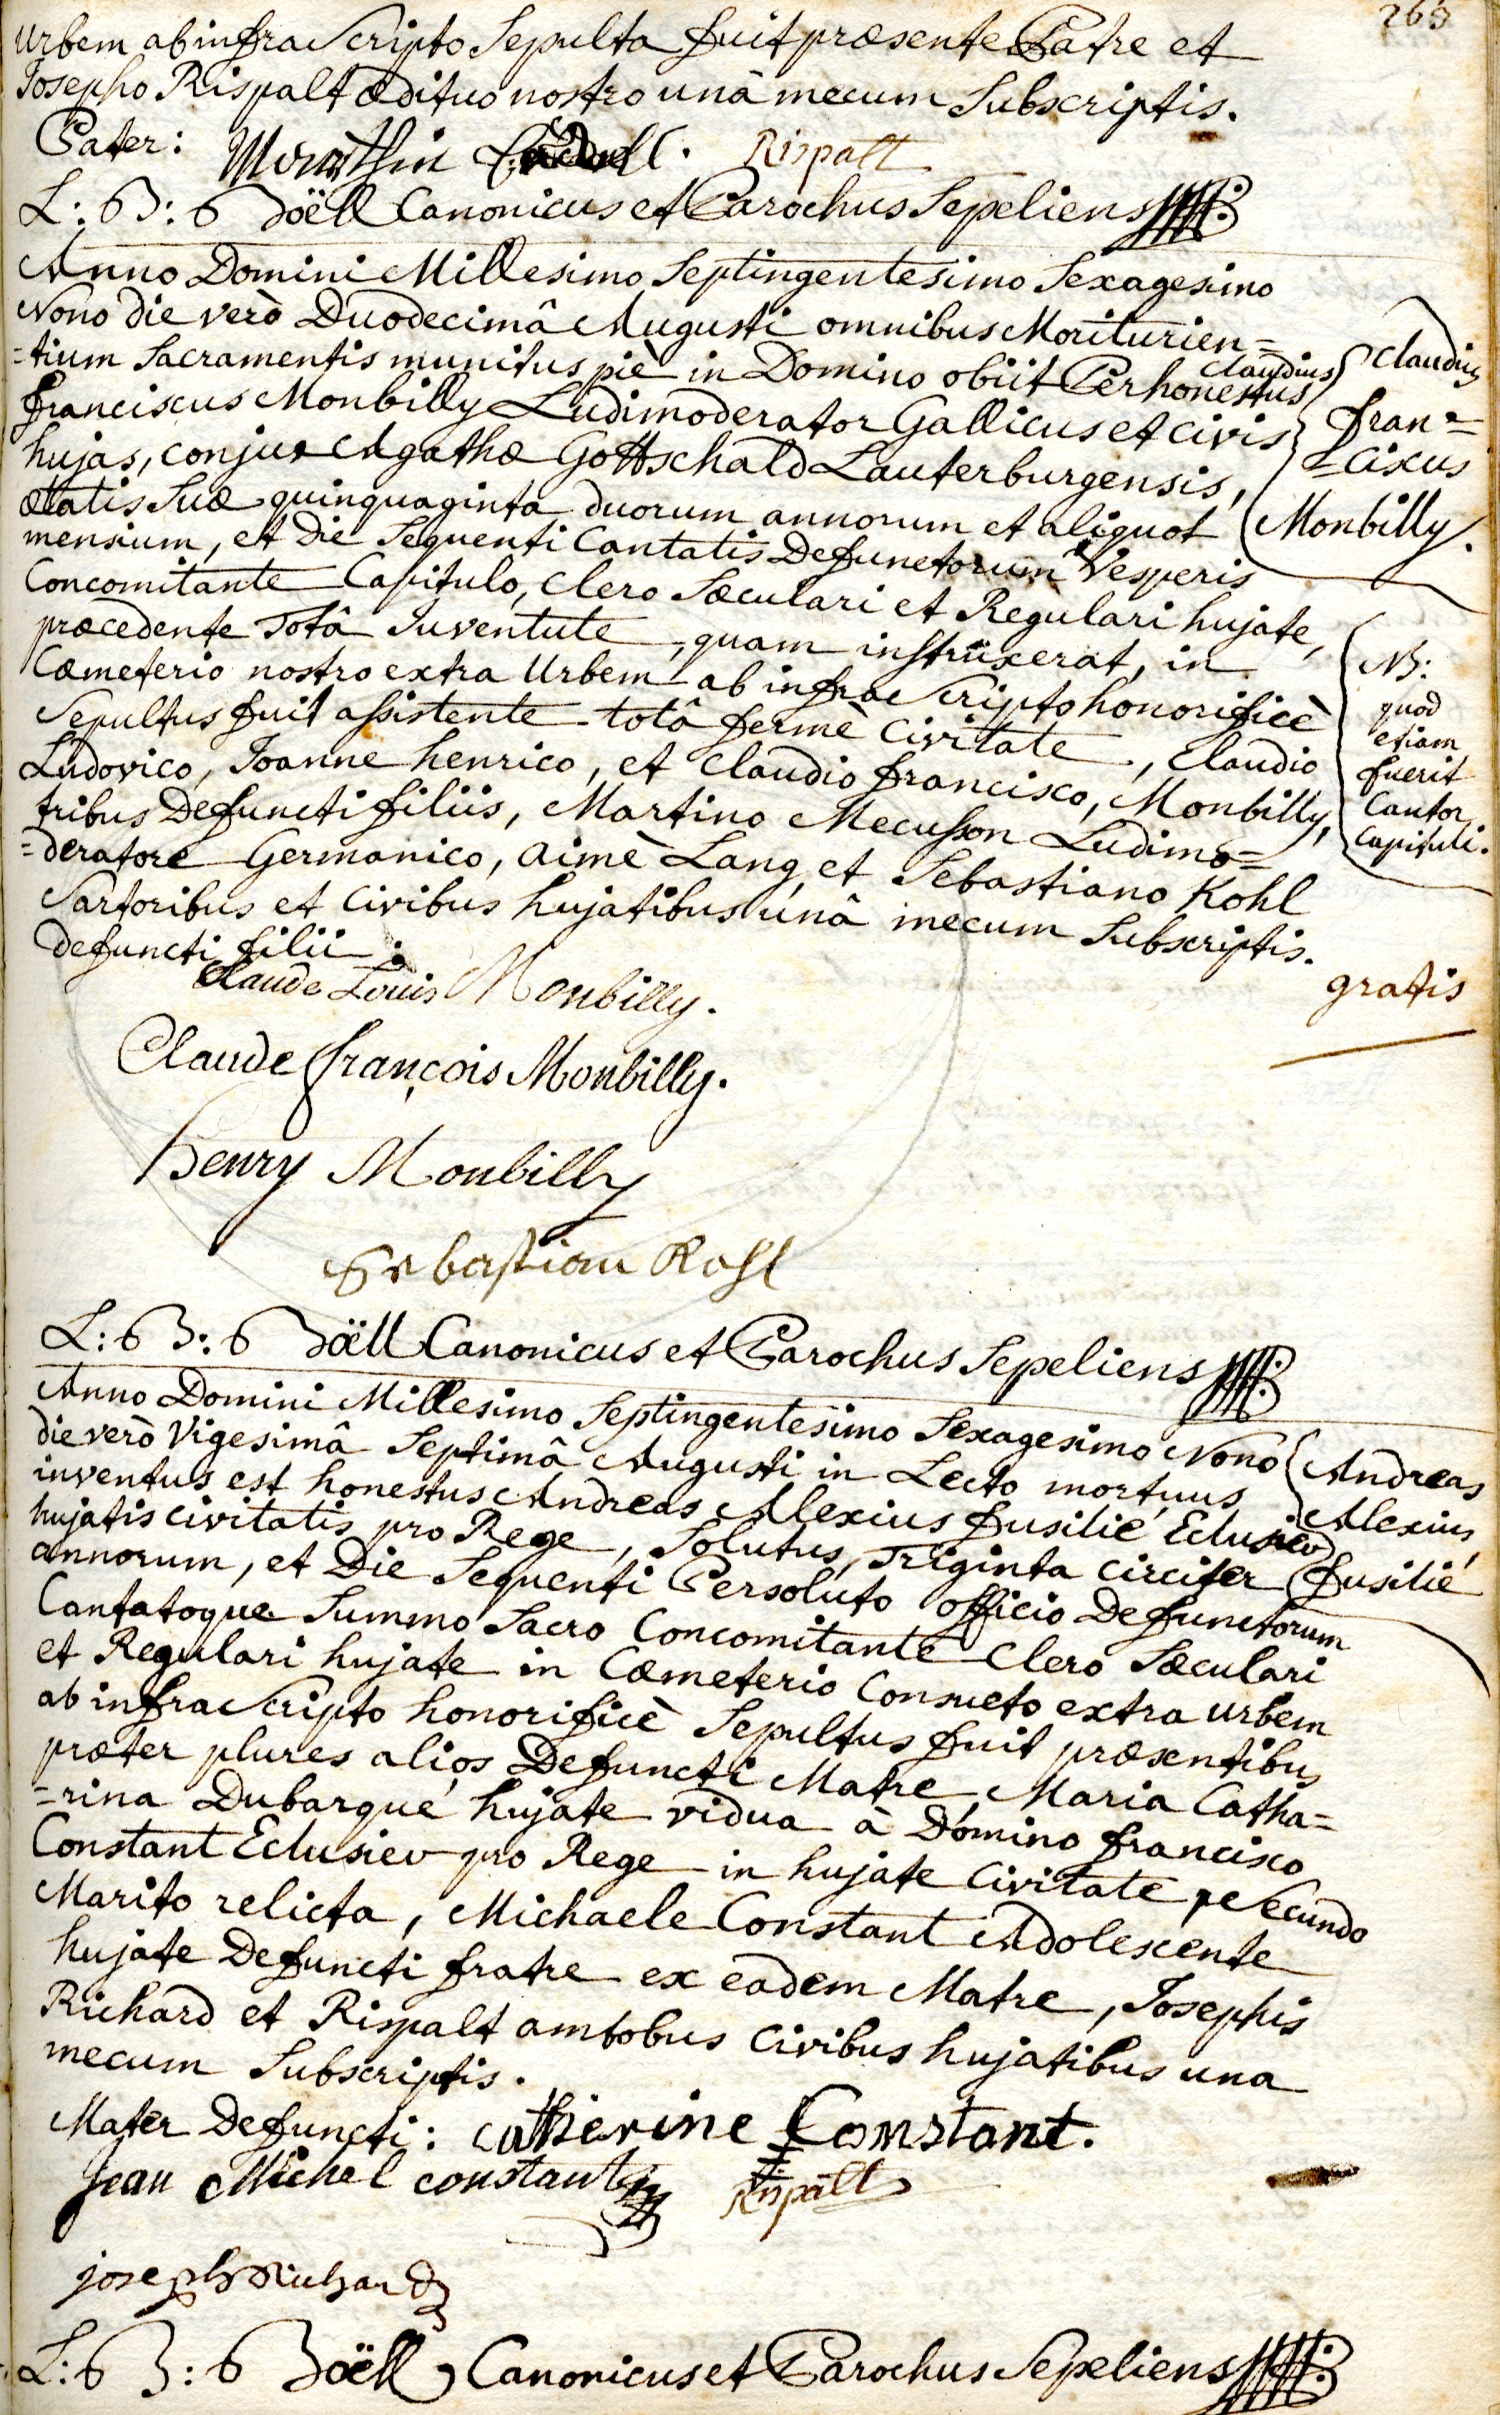 263
Urbem ab infra Scripto Sepulta fuit præsente Patre et
Josepho Rispalt ædituo nostro unâ mecum Subscriptis.
Pater:
Rispalt
L: B: Boëll Canonicus et Parochus Sepeliens
Anno Domini Millesimo Septingentesimo Sexagesimo
Nono die verò Duodecimâ Augusti omnibus Moriturien=
=tium Sacramentis munitus piè in Domino obiit Perhonestus
Claudius
franciscus Monbilly Ludimoderator Gallicus et civis
hujas, conjux Agathæ Gottschald Lauterburgensis,
ætatis Suæ quinquaginta duorum annorum et aliquot
mensium, et die Sequenti Cantatis Defunctorum Vesperis
Concomitante Capitulo, Clero Sæculari et Regulari hujate,
præcedente Totâ Juventute, quam instrüxerat, in
Cæmeterio nostro extra Urbem ab infra Scripto honorificè
Sepultus fuit assistente totâ fermè Civitate, Claudio
Ludovico, Joanne henrico, et Claudio francisco, Monbilly,
tribus Defuncti filiis, Martino Mecusson Ludimo=
=deratore Germanico, Aimè Lang et Sebastiano Kohl
Sartoribus et Civibus hujatibus unâ mecum Subscriptis.
Claudius
fran=
=cixus
Monbilly.
NB:
quod
etiam
fuerit
Cantor
Capituli.
gratis
defuncti filii:
Claude Louis Monbilly.
Claude françois Monbilly.
henry Monbilly
Sebastian Kohl
L: B: Boëll Canonicus et Parochus Sepeliens
Anno Domini Millesimo Septingentesimo Sexagesimo Nono
die verò Vigesimâ Septimâ Augusti in Lecto mortuus
inventus est honestus Andreas Alexius fusilié Eclusieur
hujatis civitatis pro Rege, Solutus, Triginta circiter
annorum, et Die Sequenti Persoluto officio Defunctorum
Cantatoque Summo Sacro Concomitante Clero Sæculari
et Regulari hujate in Cæmeterio Consueto extra urbem
ab infra Scripto honorificè Sepultus fuit præsentibus
præter plures alios Defuncti Matre, Maria Catha=
=rina Dubarqué hujate vidua à Domino francisco
Constant Eclusieur pro Rege in hujate Civitate Secundo
Marito relicta, Michaele Constant Adolescente
hujate Defuncti fratre ex eadem Matre, Josephis
Richard et Rispalt ambobus Civibus hujatibus una
mecum Subscriptis.
Andreas
Alexius
fusilié
Mater Defuncti: catherine Constant.
Jean Michel constant
Rispalt
joseph Richard
L: B: Boëll Canonicus et Parochus Sepeliens